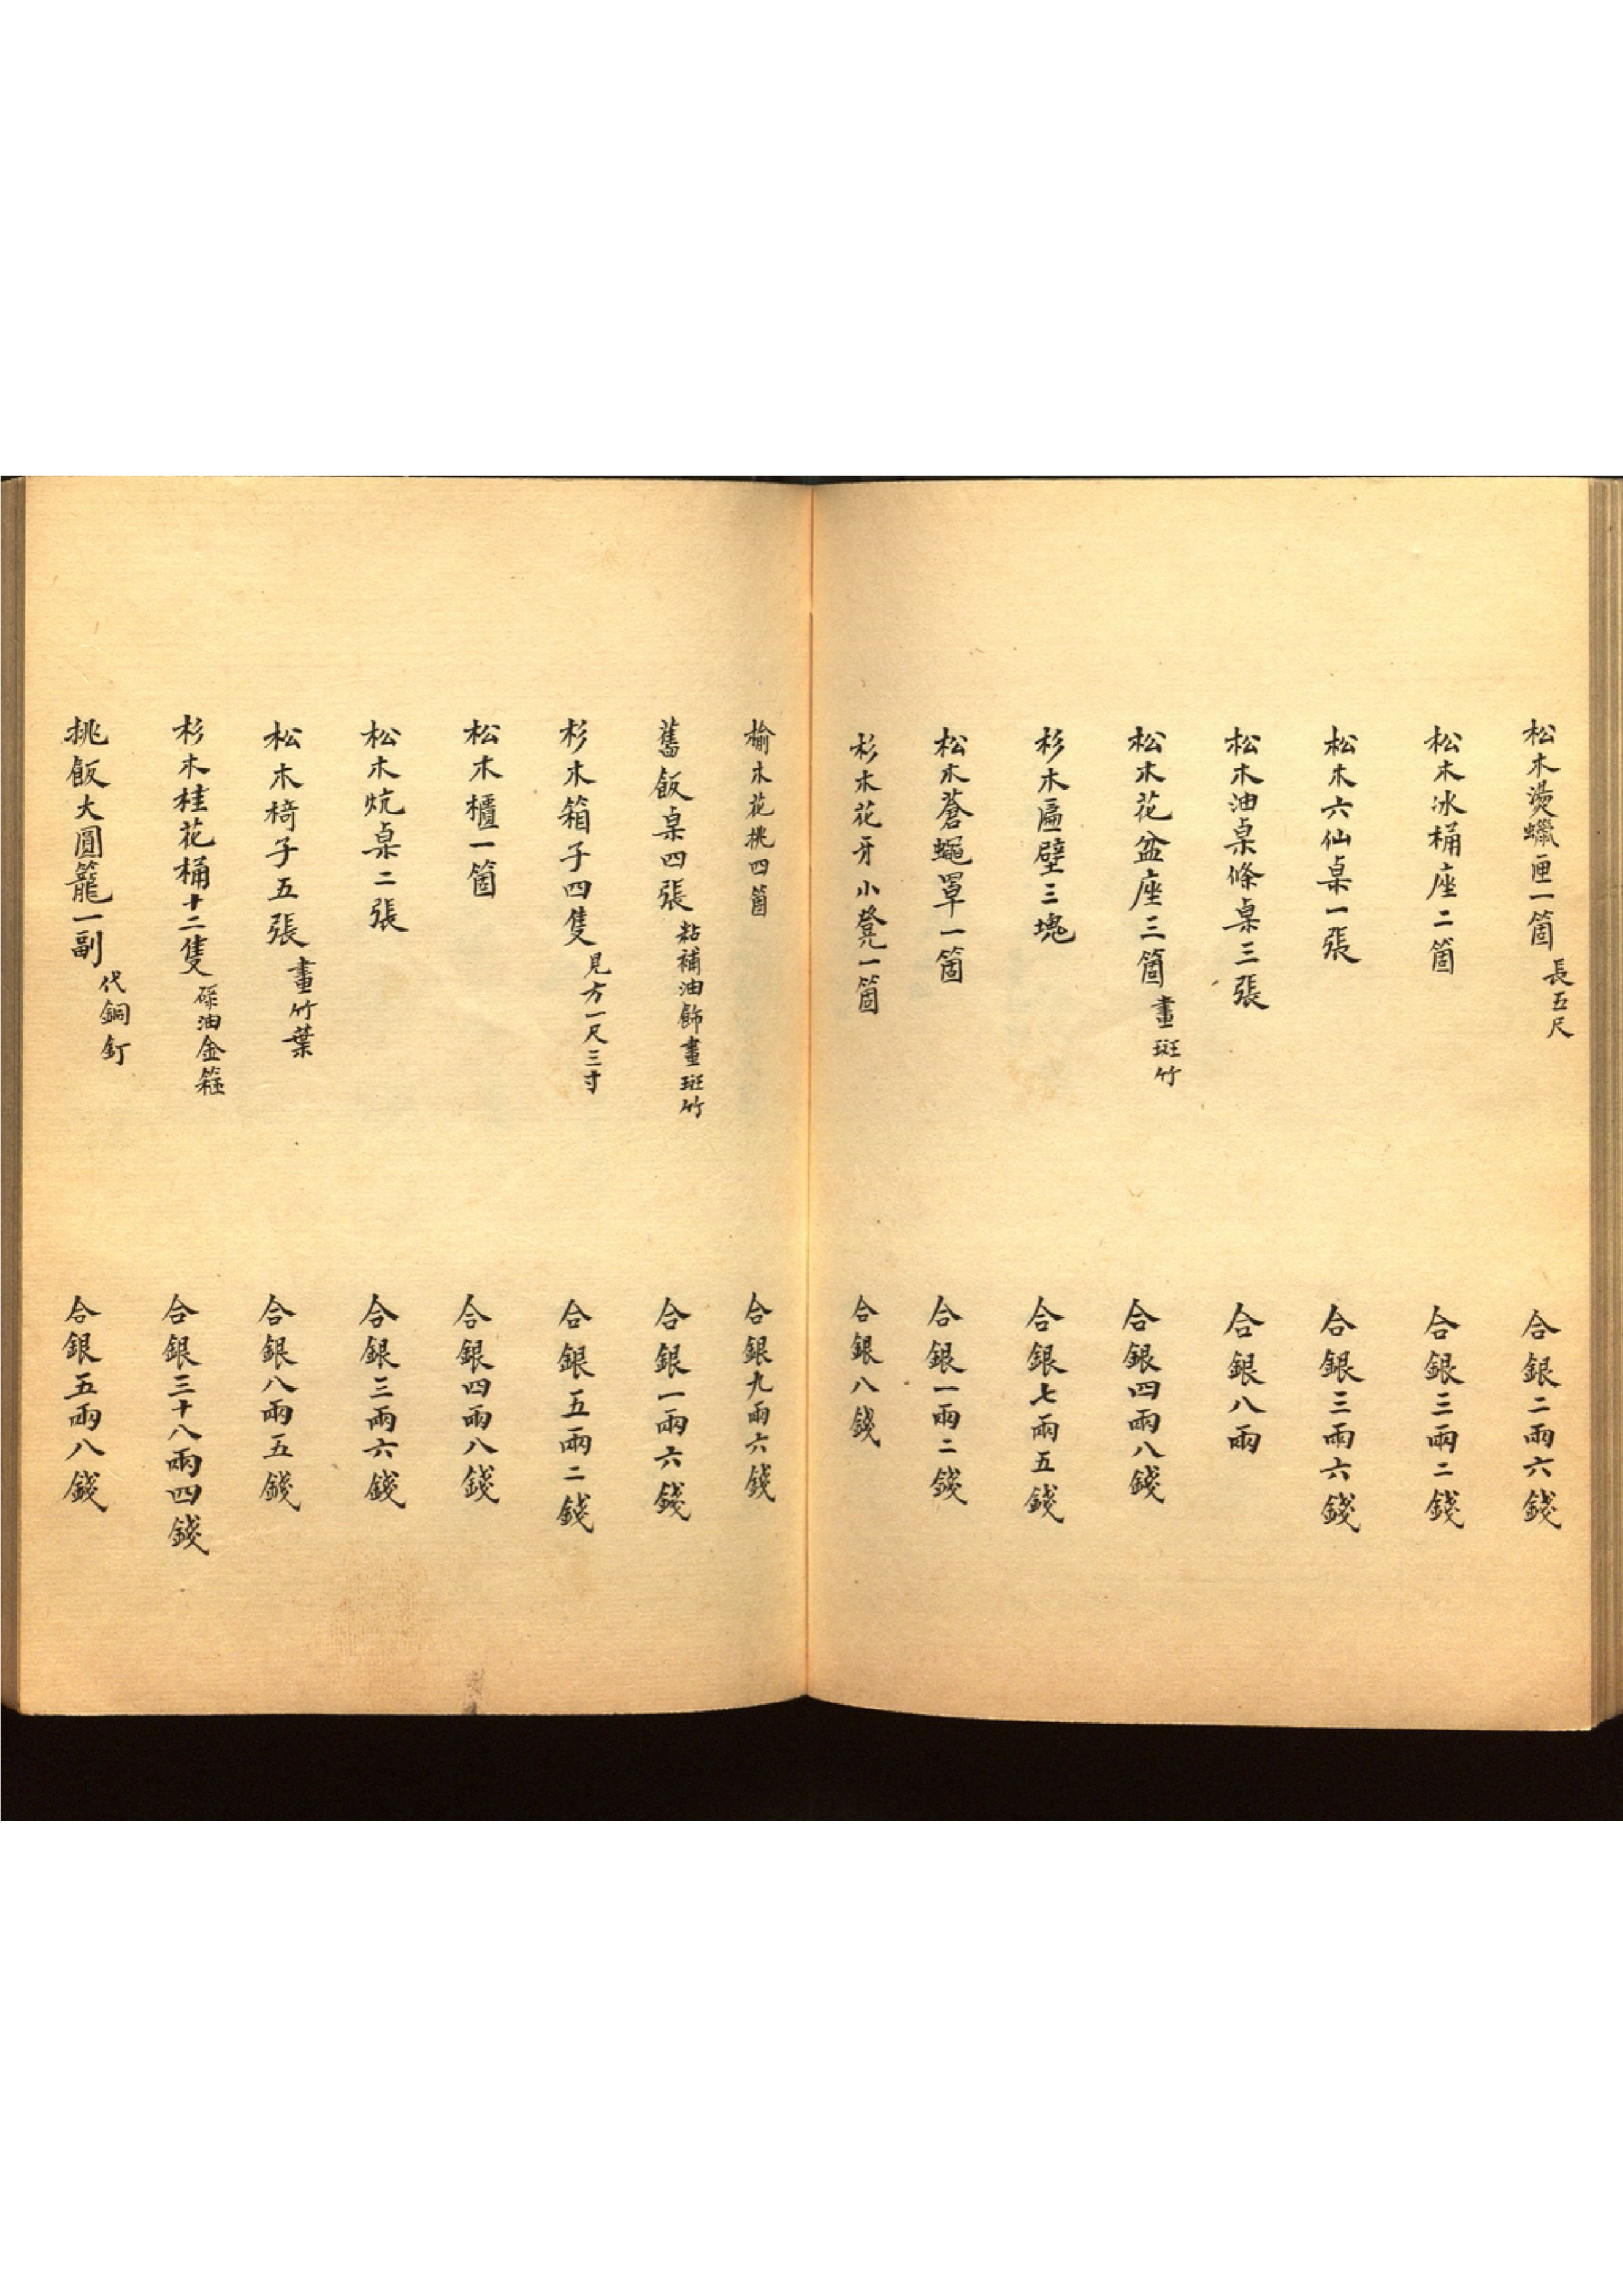 松木燙蠟匣一箇 長五尺 合銀二兩六錢
松木冰桶座二箇 合銀三兩二錢
松木六仙桌一張 合銀三兩六錢
松木油桌條桌三張 合銀八兩
松木花盆座三箇 畫斑竹 合銀四兩八錢
杉木匾壁三塊 合銀七兩五錢
松木蒼蠅罩一箇 合銀一兩二錢
杉木花牙小凳一箇 合銀八錢
榆木花桃四箇 合銀九兩六錢
舊飯桌四張 粘補油飾畫斑竹 合銀一兩六錢
杉木箱子四隻 見方一尺三寸 合銀五兩二錢
松木櫃一箇 合銀四兩八錢
松木炕桌二張 合銀三兩六錢
松木椅子五張 畫竹葉 合銀八兩五錢
杉木桂花桶十二隻 硃油金箍 合銀三十八兩四錢
挑飯大圓籠一副 代銅釘 合銀五兩八錢